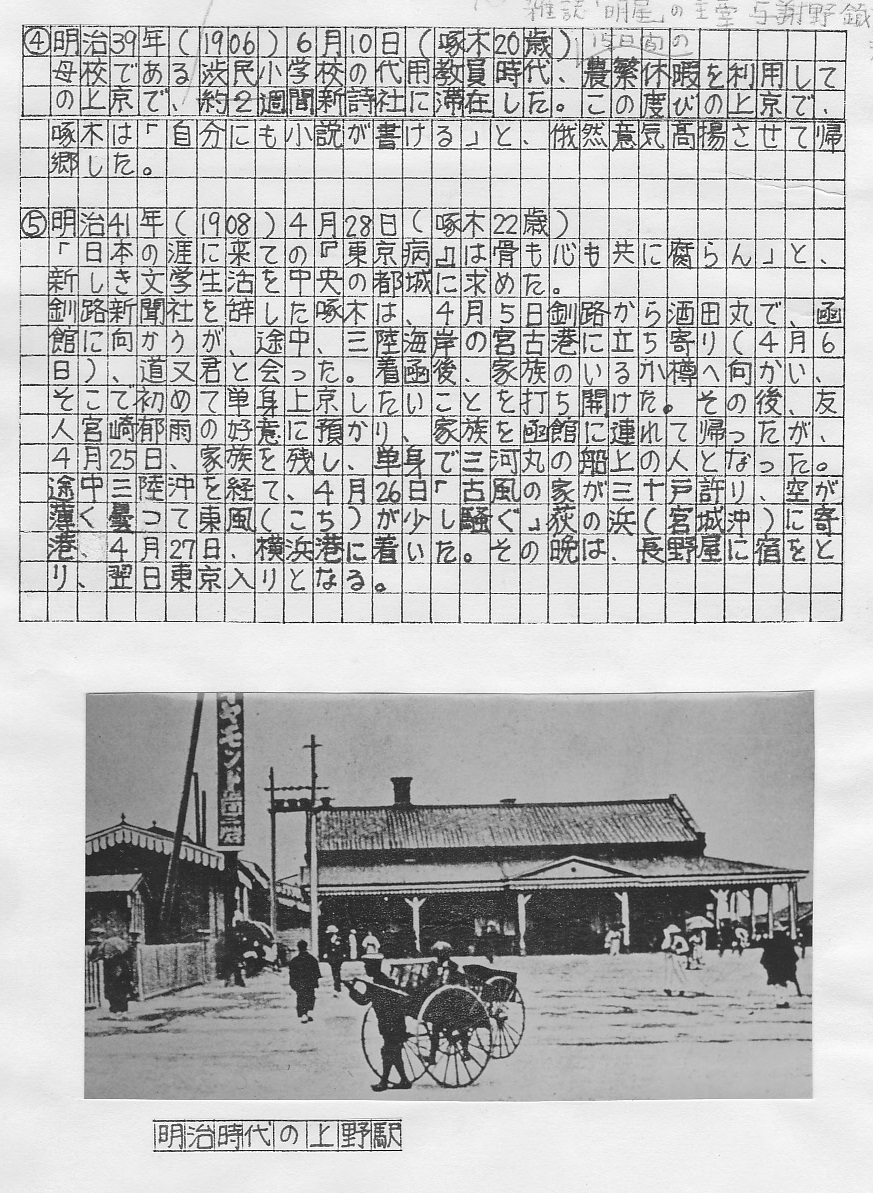 雑誌「明星」の主宰 与謝野鉄
15日間の
④明治39年(1906)6月10日(啄木20歳)
母校である渋民小学校の代用教員時代、農繁休暇を利用して
の上京で、約2週間新詩社に滞在した。この度びの上京で、
啄木は「自分にも小説が書ける」と、俄然意気高揚させて帰
郷した。
⑤明治41年(1908)4月28日(啄木22歳)
「日本の涯に来ての『東京病』は骨も心も共に腐らん」と、
新しき文学生活を中央の都城に求めた。
釧路新聞社を辞した啄木は、4月5日釧路から酒田丸で、函
館に向かうが、途中、三陸海岸の宮古港に立ち寄り(4月6
日)、道又君と会った。着函後、家族のいる小樽へ向かい、
そこで初めて単身上京したいことを打ち開けた。その後、友
人宮崎郁雨の好意に預かり、家族を函館に連れて帰ったが、
4月25日、家族を残し、単身で三河丸の船上の人となった。
途中三陸沖を経て、4月26日「古風の家が三十戸許り、空が
薄く曇って東風(こち)が少し騒ぐ」荻の浜(宮城沖)に寄
港、4月27日、横浜港に着いた。その晩は、長野屋に宿をと
り、翌日東京入りとなる。
明治時代の上野駅